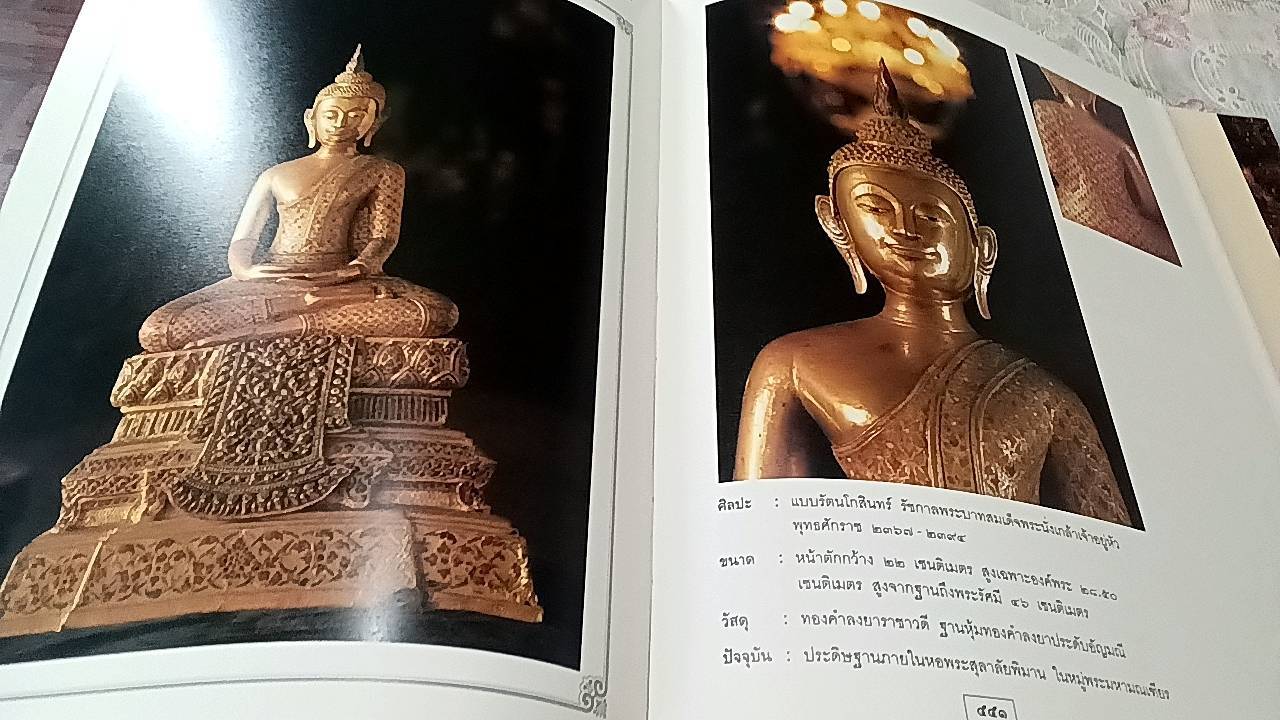 ศิลปะ : แบบรัตนโกสินทร์ รัชกาลพระบาทสมเด็จพระนั่งเกล้าเจ้าอยู่หัว
พุทธศักราช ๒๓๖๗ - ๒๓๙๔
ขนาด : หน้าตักกว้าง ๒๒ เซนติเมตร สูงเฉพาะองค์พระ ๒๘.๕๐
เซนติเมตร สูงจากฐานถึงพระรัศมี ๔๖ เซนติเมตร
วัสดุ : ทองคำลงยาราชาวดี ฐานหุ้มทองคำลงยาประดับอัญมณี
ปัจจุบัน : ประดิษฐานภายในหอพระสุลาลัยพิมาน ในหมู่พระมหามณเฑียร
๕๕๑